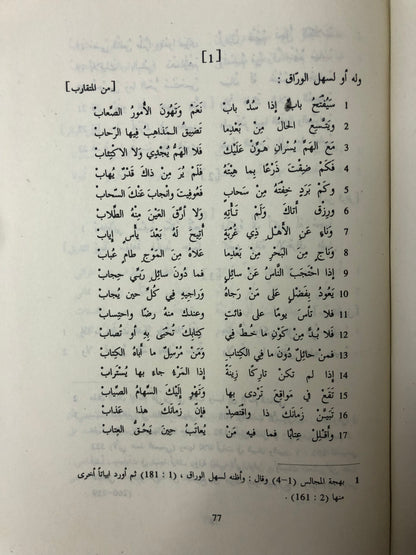 [1]
وله أو لسهل الورّاق : [من المتقارب]
1 سَيُفْتَحُ بابٌ إذا سُدَّ بابُ نَعَمْ وَتَهُونُ الأمورُ الصِّعابُ
2 وَيَتَّسِعُ الحَالُ مِنْ بَعْدِما تَضِيقُ المَذاهِبُ فِيها الرِّحابُ
3 مَعَ الهَمِّ يُسْرانِ هَوِّنْ عَلَيْكَ فَلا الهَمُّ يُجْدِي وَلا الاكْتِئابُ
4 فَكَمْ ضِقْتَ ذَرْعًا بِما هِبْتَهُ فَلَمْ يُرَ مِنْ ذاكَ قَدْرٌ يُهابُ
5 وكَمْ بَرَدٍ خِفْتَهُ مِنْ سَحابٍ فَعُوفِيتَ وانْجابَ عَنْكَ السَّحابُ
6 وَرِزْقٍ أَتاكَ وَلَمْ تَأْتِهِ وَلا أَرَّقَ العَيْنَ مِنْهُ الطِّلابُ
7 وَناءٍ عَنِ الأَهْلِ ذِي غُرْبَةٍ أُتِيحَ لَهُ بَعْدَ يأسٍ إيابُ
8 وَناجٍ مِنَ البَحْرِ مِنْ بَعْدِما عَلاهُ مِنَ المَوْجِ طامٍ عُبابُ
9 إذا احْتَجَبَ النَّاسُ عَنْ سائِلٍ فَما دُونَ سائِلِ رَبِّي حِجابُ
10 يَعُودُ بِفَضْلٍ عَلَى مَنْ رَجاهُ وَراجِيهِ فِي كُلِّ حينٍ يُجابُ
11 فَلا تأسَ يومًا على فائتٍ وعندك منهُ رضًا واحتِسابُ
12 فَلا بُدَّ مِنْ كَوْنِ ما خُطَّ فِي كِتابِكَ تُحْبَى بِهِ أو تُصابُ
13 فمنْ حائلٌ دُونَ ما فِي الكِتابِ وَمَنْ مُرْسِلٌ ما أَباهُ الكِتابُ
14 إذا لم تكنْ تارِكًا زِينَةً إذا المَرْءُ جاءَ بها يُسْترابُ
15 تَقَعْ فِي مَواقِعَ تَرْدَى بِها وَتَهْوِ إلَيْكَ السِّهامُ الصِّيابُ
16 تَبَيَّنْ زَمانَكَ ذا واقْتَصِدْ فإنَّ زَمانَكَ هذا عَذابُ
17 وَأَقْلِلْ عِتابًا فما فيهِ مَنْ يُعاتَبُ حينَ يَحقُّ العِتابُ
1 بهجة المجالس (1-4) وقال : وأظنه لسهل الوراق ، (1 : 181) ثم أورد أبياتاً أخرى
منها (2 : 161) .
77